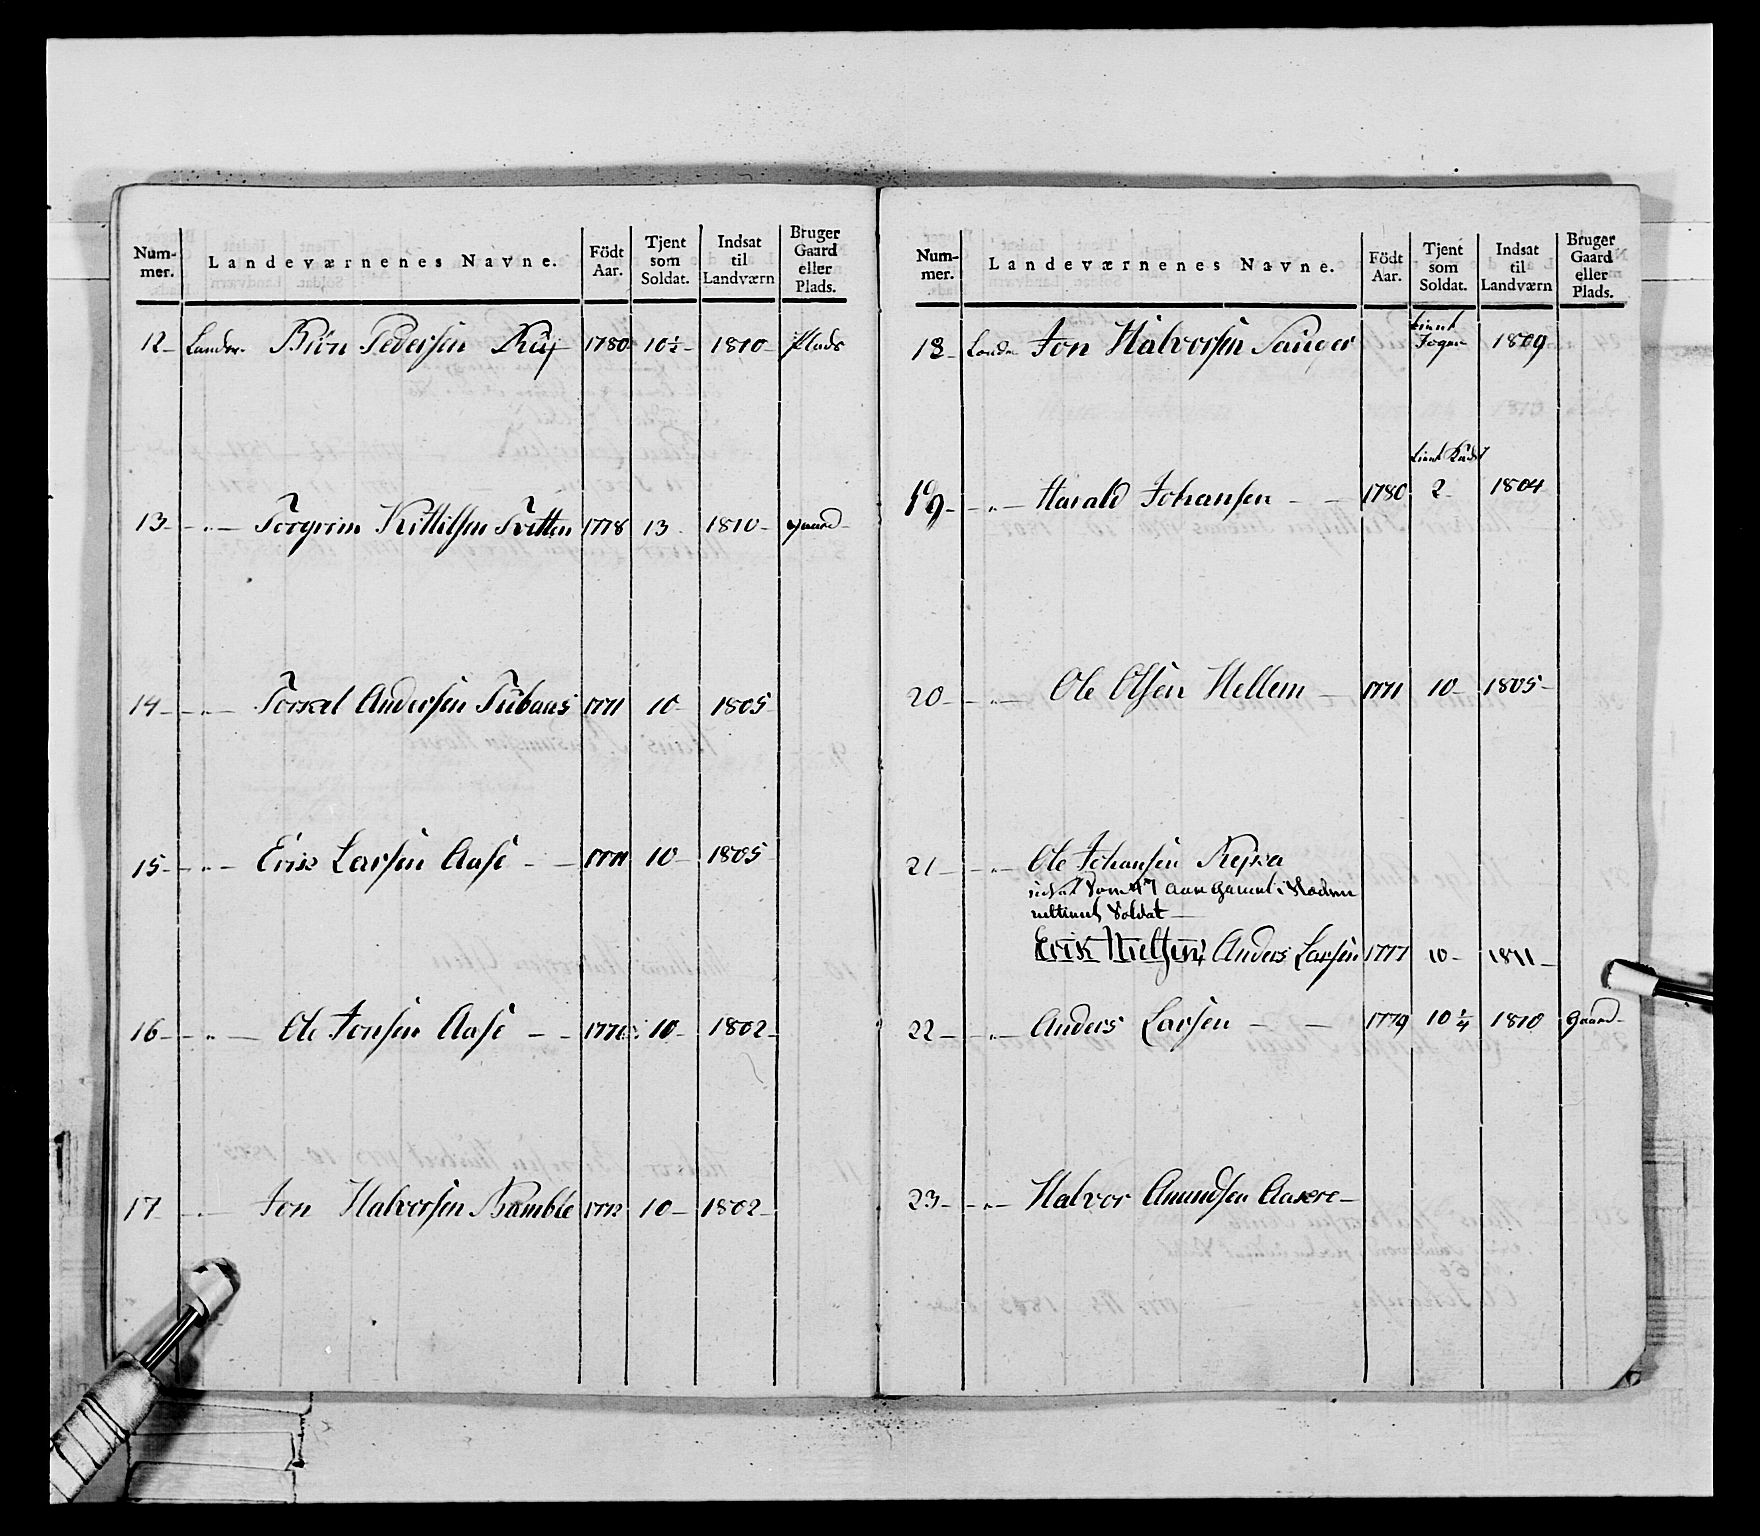 Num-mer. Landeværnenes Navne. Födt Aar. Tjent som Soldat. Indsat til Landværn Bruger Gaard eller Plads.
12 - Landv. Biön Pedersen Ruj 1780 10½ - 1810 - Plads
13 - - " - Torgrim Kittilsen Tvetten 1778 13 1810 - Gaard -
14 - - " - Torkel Andersen 1771 10 - 1805 -
15 - - " - Erik Larsen Aase - - 1771 10 - 1805 -
16 - - " - Ole Jonsen Aase - - 10 - 1802 -
17 - " - Jon Halvorsen Bamble 1772 10 - 1802 -
Num-mer. Landeværnenes Navne. Födt Aar. Tjent som Soldat. Indsat til Landværn Bruger Gaard eller Plads.
18 - Landv Jon Halvorsen 1809
19 - - " - Harald Johansen - - 1780 2 - 1804
20 - - " - Ole Olsen Hellem - 1771 10 - 1805 -
21 - - " - Ole Johansen
som 47 Aar gammel
Soldat -
Erik Nielsen Anders Larsen 1777 10 - 1811 -
22 - - " - Anders Larsen - - 1779 10¼ 1810 Gaard -
23 - - " - Halvor Amundsen -